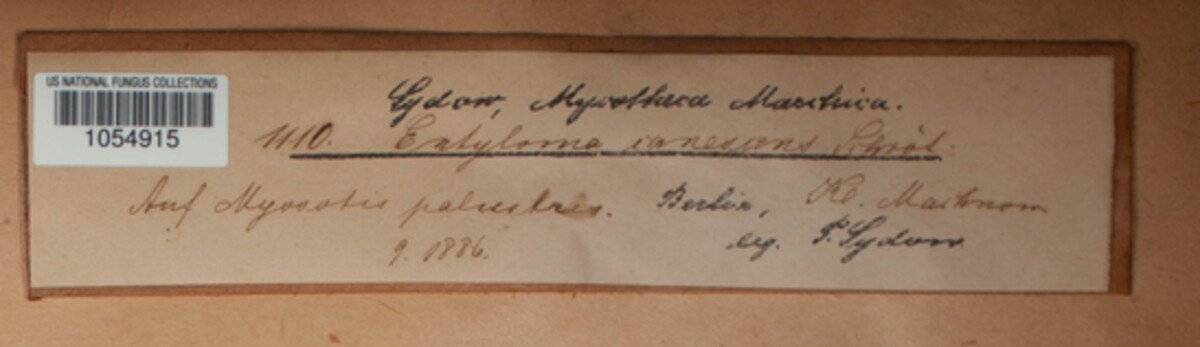 US NATIONAL FUNGUS COLLECTIONS
1054915
Sydow, Mycotheca Marchica.
1110. Entyloma canescens Schröt.
Auf Myosotis palustris. Berlin, Kl. Machnow
9. 1886. leg. P. Sydow